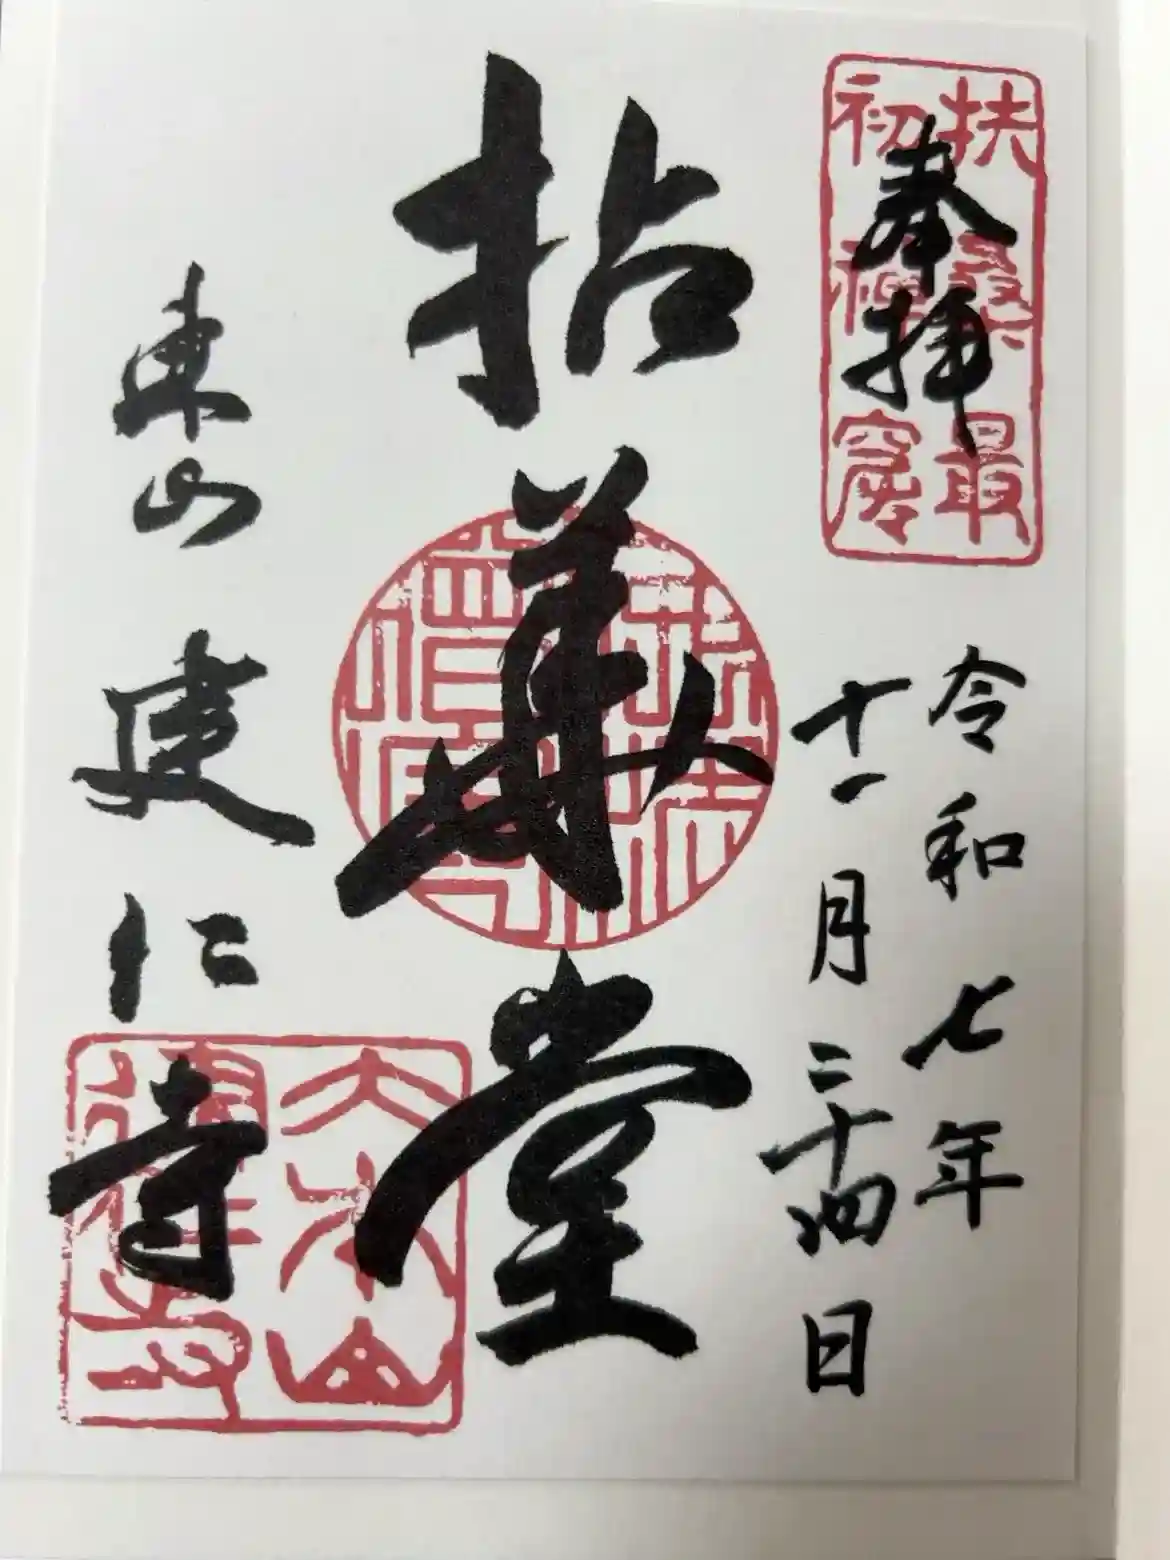 奉拝
扶桑最
初禅窟
令和七年
十一月二十四日
拈華堂
東山
建仁寺
大本山
建仁寺